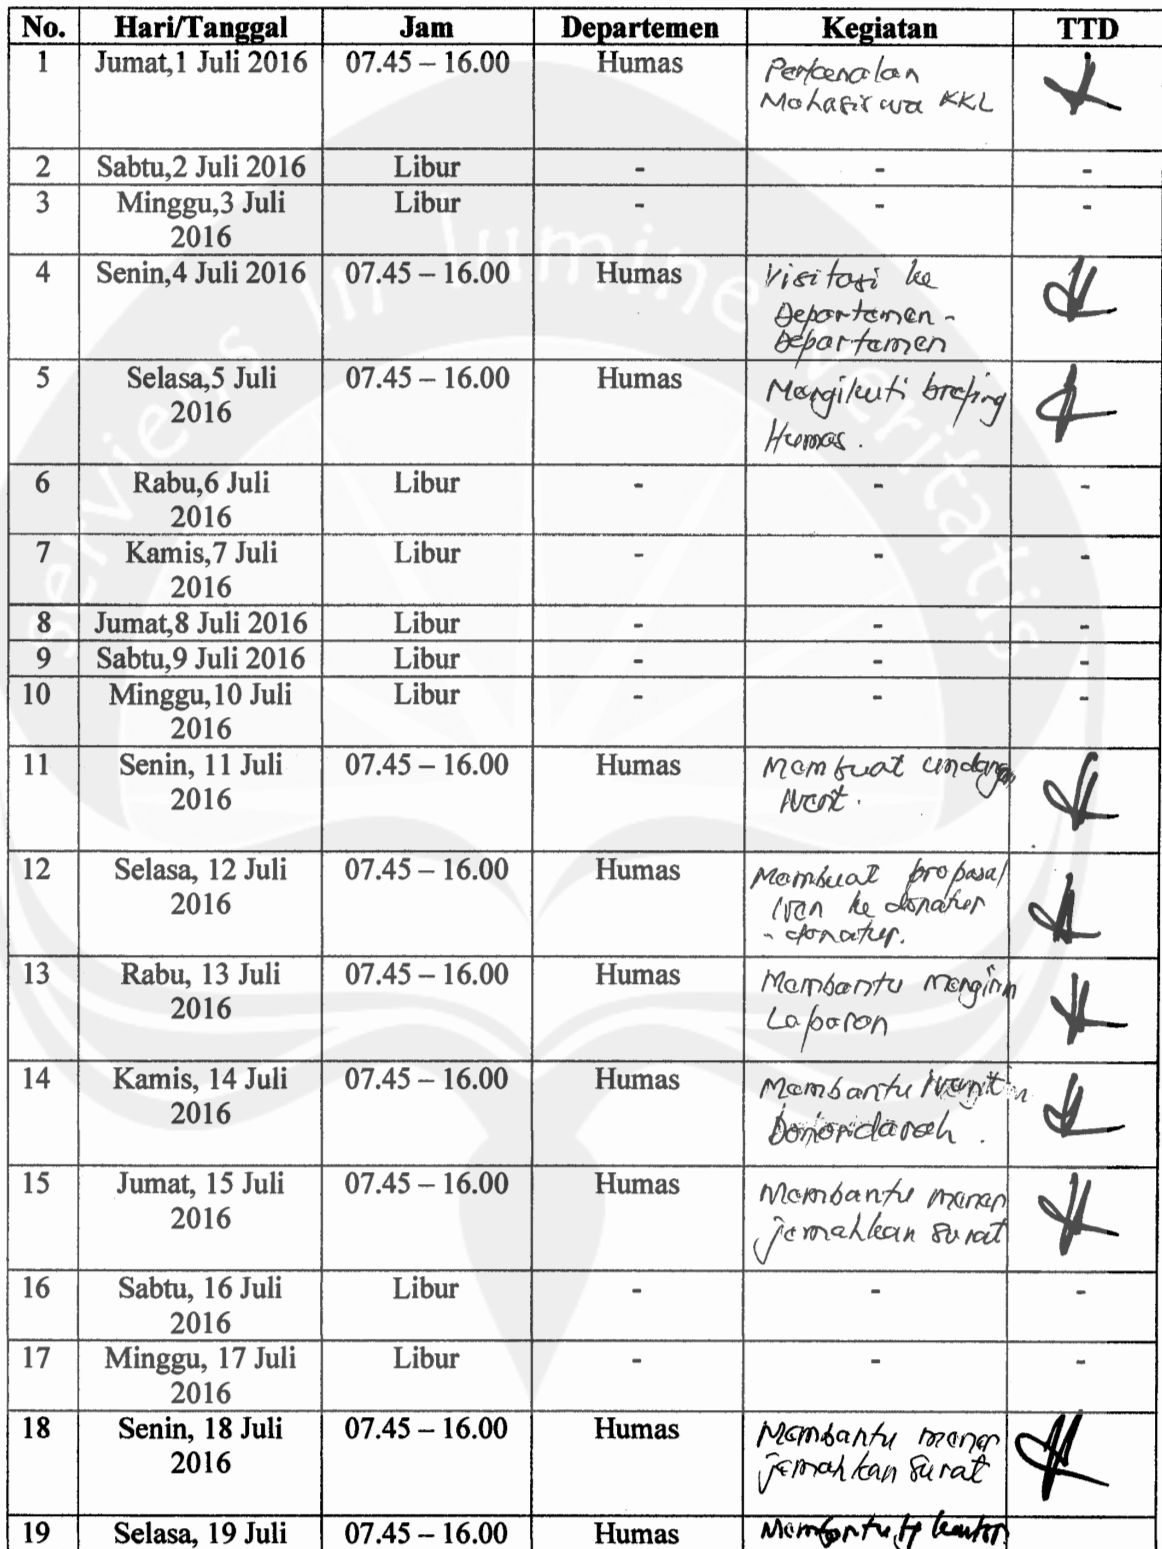 No. Hari/Tanggal Jam Departemen Kegiatan TTD
1 Jumat,1 Juli 2016 07.45 – 16.00 Humas Perkenalan
Mahasiswa KKL
2 Sabtu,2 Juli 2016 Libur - - -
3 Minggu,3 Juli Libur - - -
2016
4 Senin,4 Juli 2016 07.45 – 16.00 Humas Visitasi ke
Departemen-
Departemen
5 Selasa,5 Juli 07.45 – 16.00 Humas Mengikuti brefing
2016 Humas.
6 Rabu,6 Juli Libur - - -
2016
7 Kamis,7 Juli Libur - - -
2016
8 Jumat,8 Juli 2016 Libur - - -
9 Sabtu,9 Juli 2016 Libur - - -
10 Minggu,10 Juli Libur - - -
2016
11 Senin, 11 Juli 07.45 – 16.00 Humas Membuat undangan
2016 Ivent.
12 Selasa, 12 Juli 07.45 – 16.00 Humas Membuat proposal
2016 ke donatur
- donatur.
13 Rabu, 13 Juli 07.45 – 16.00 Humas Membantu mengirim
2016 Laporan
14 Kamis, 14 Juli 07.45 – 16.00 Humas Membantu
2016 Donordarah.
15 Jumat, 15 Juli 07.45 – 16.00 Humas Membantu mener
2016 jemahkan surat
16 Sabtu, 16 Juli Libur - - -
2016
17 Minggu, 17 Juli Libur - - -
2016
18 Senin, 18 Juli 07.45 – 16.00 Humas Membantu mener
2016 jemahkan surat
19 Selasa, 19 Juli 07.45 – 16.00 Humas Membantu
serviens in lumine veritatis